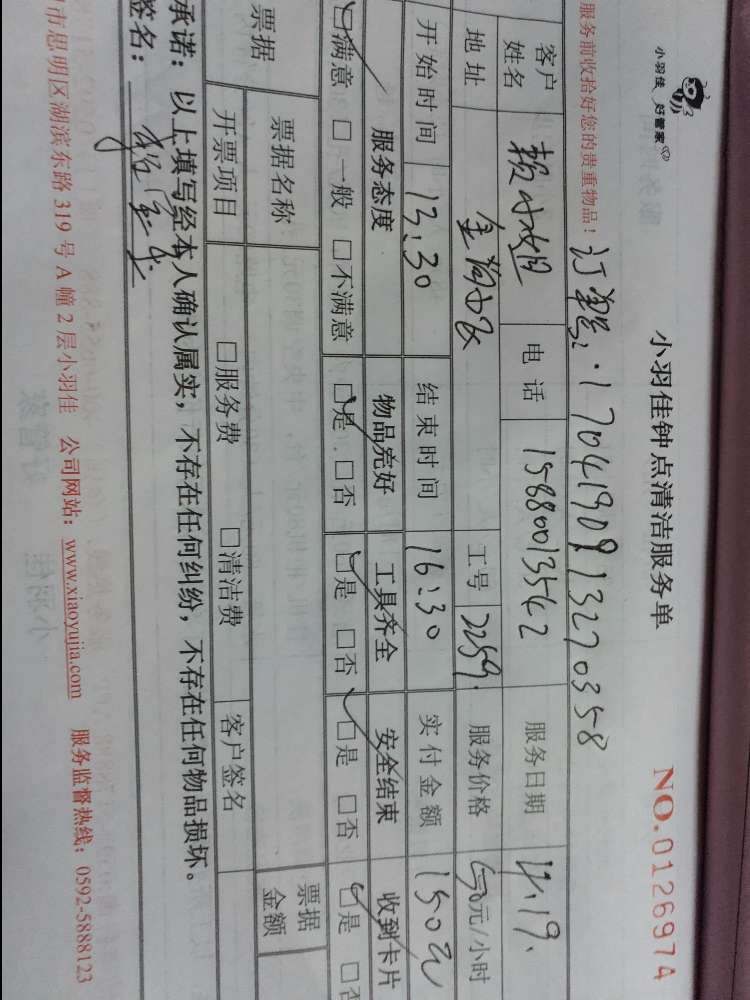 小羽佳 好管家
小羽佳钟点清洁服务单
NO.0126974
服务前收拾好您的贵重物品！ 订单号：1704190913270358
客户姓名 赖小姐 电话 15880013542 服务日期 4.19.
地址 工号 2259. 服务价格 50元/小时
开始时间 13:30 结束时间 16:30 实付金额 150元
服务态度 物品完好 工具齐全 安全结束 收到卡片
☑满意 □一般 □不满意 ☑是 □否 ☑是 □否 ☑是 □否 ☑是 □否
票据 票据名称 □服务费 □清洁费 票据金额
开票项目 客户签名
承诺：以上填写经本人确认属实，不存在任何纠纷，不存在任何物品损坏。
签名：
市思明区湖滨东路319号A幢2层小羽佳 公司网站：www.xiaoyujia.com 服务监督热线：0592-5888123